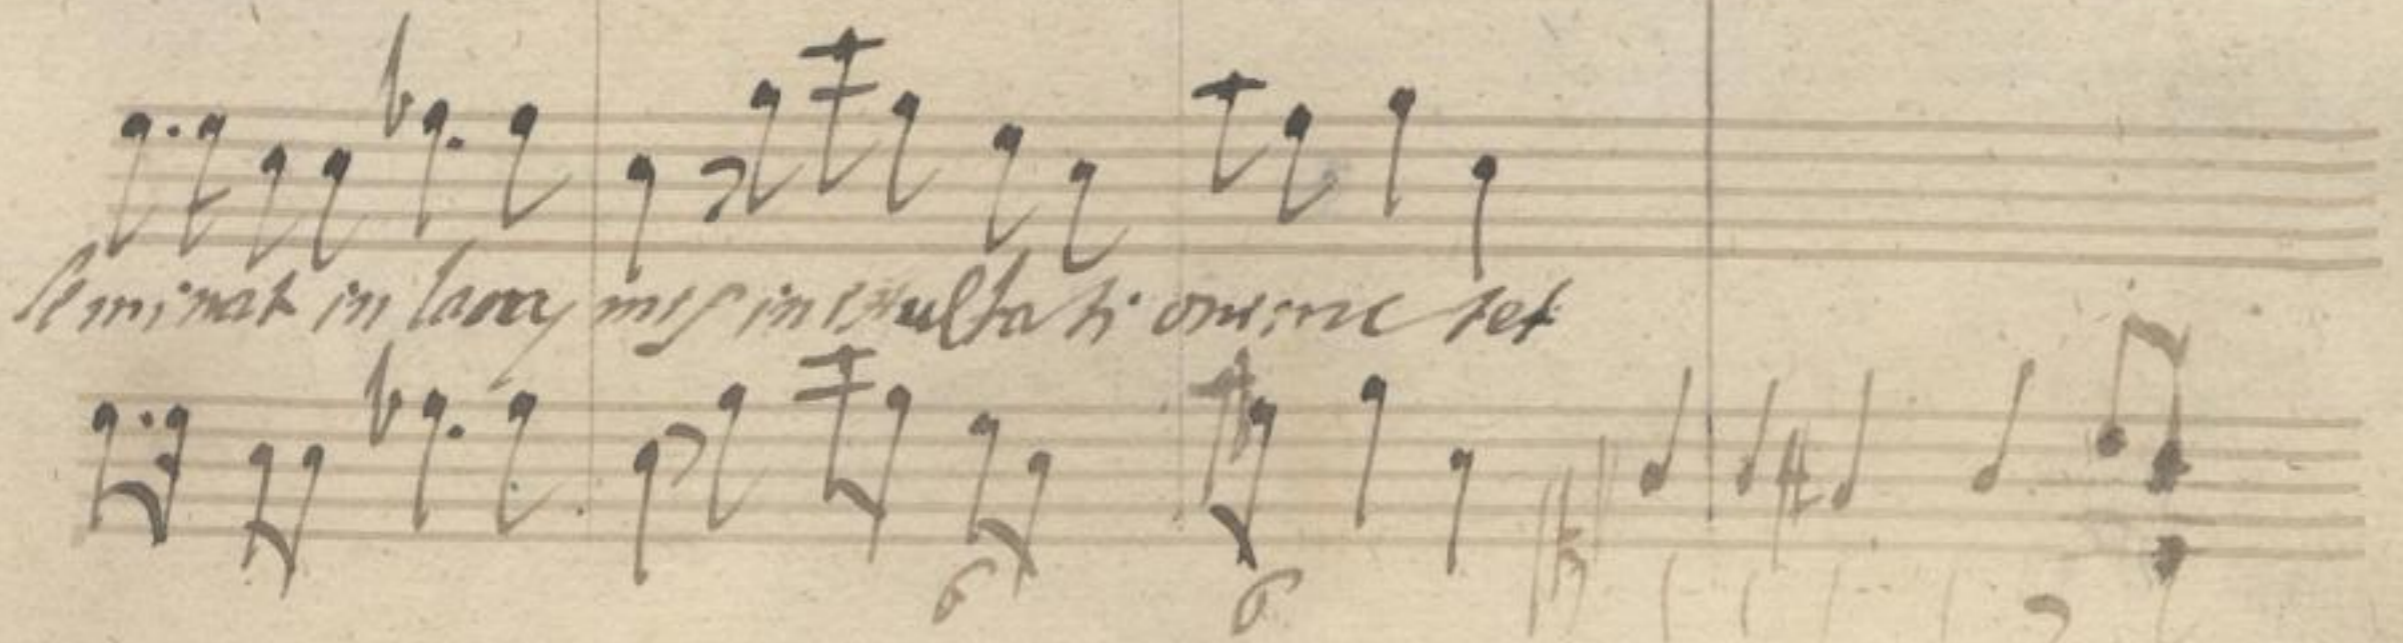 seminat in lacrymis in exultatione me tet
6 6